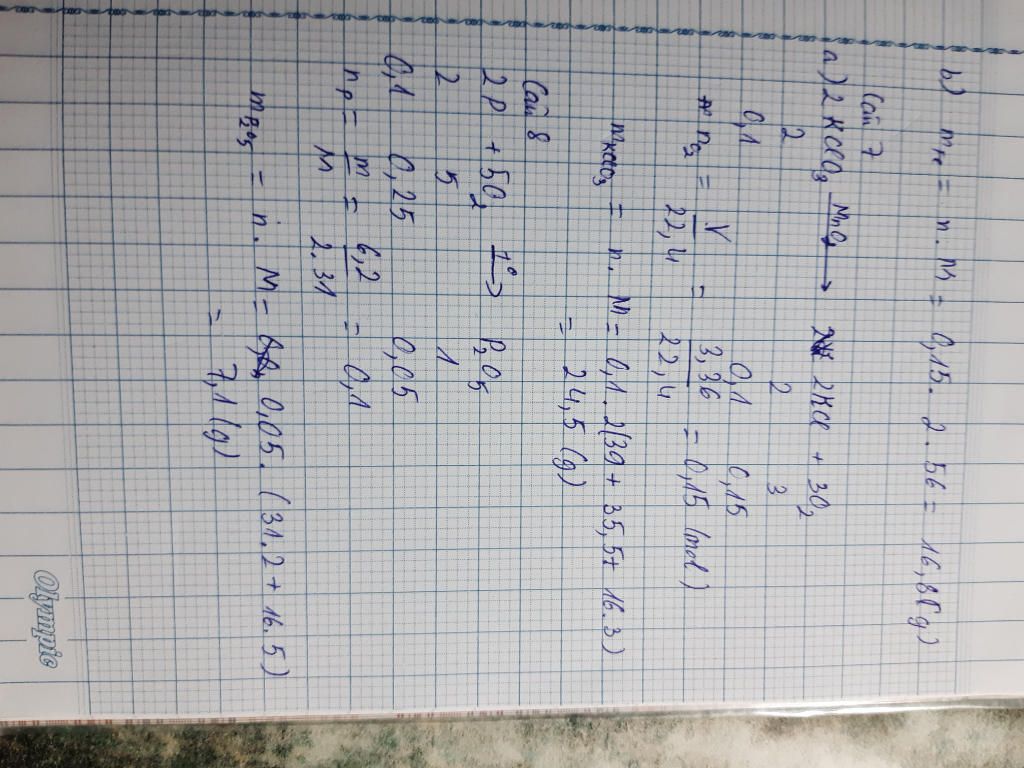 b) mFe = n . M = 0,15 . 2 . 56 = 16,8 (g)
Câu 7
a) 2KClO3 MnO2→ 2KCl + 3O2
2 2 3
0,1 0,1 0,15
nO2 = V/22,4 = 3,36/22,4 = 0,15 (mol)
mKClO3 = n . M = 0,1 . 2(39 + 35,5 + 16.3)
= 24,5 (g)
Câu 8
2P + 5O2 t°→ P2O5
2 5 1
0,1 0,25 0,05
nP = m/M = 6,2/2.31 = 0,1
mP2O5 = n . M = 0,05 . (31.2 + 16.5)
= 7,1 (g)
Olympic